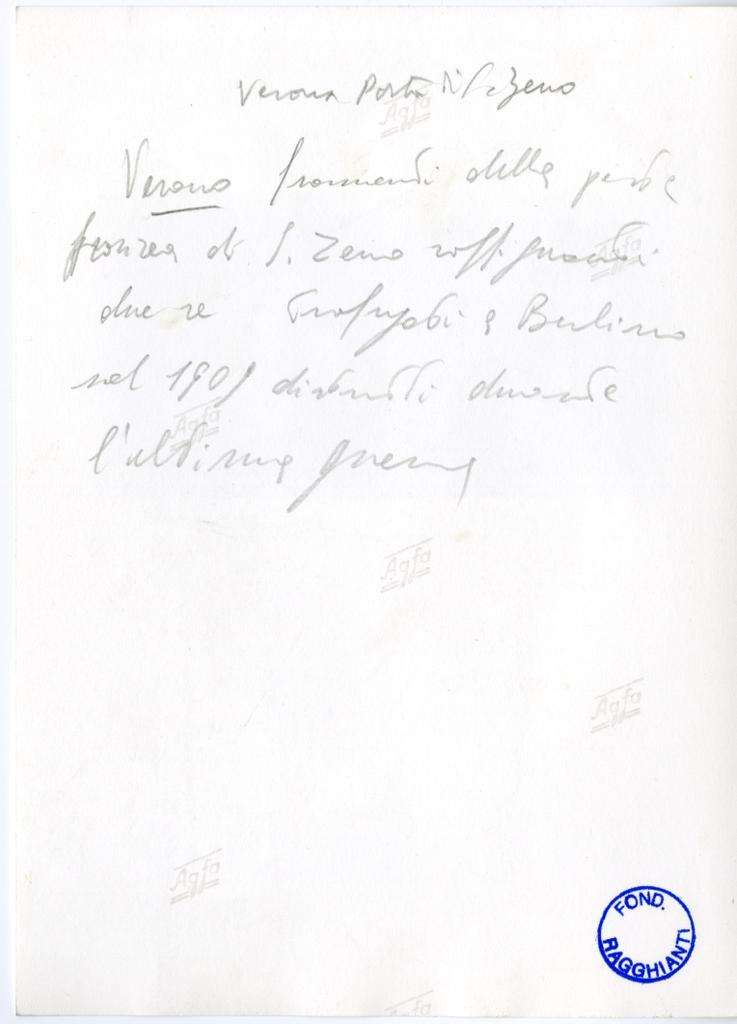 Verona Porta di S. Zeno
Verona frammenti della porta
bronzea di S. Zeno raffiguranti
due re trafugati a Berlino
nel 1909 distrutti durante
l'ultima guerra
Agfa
Agfa
Agfa
Agfa
Agfa
Agfa
Agfa
FOND.
RAGGHIANTI